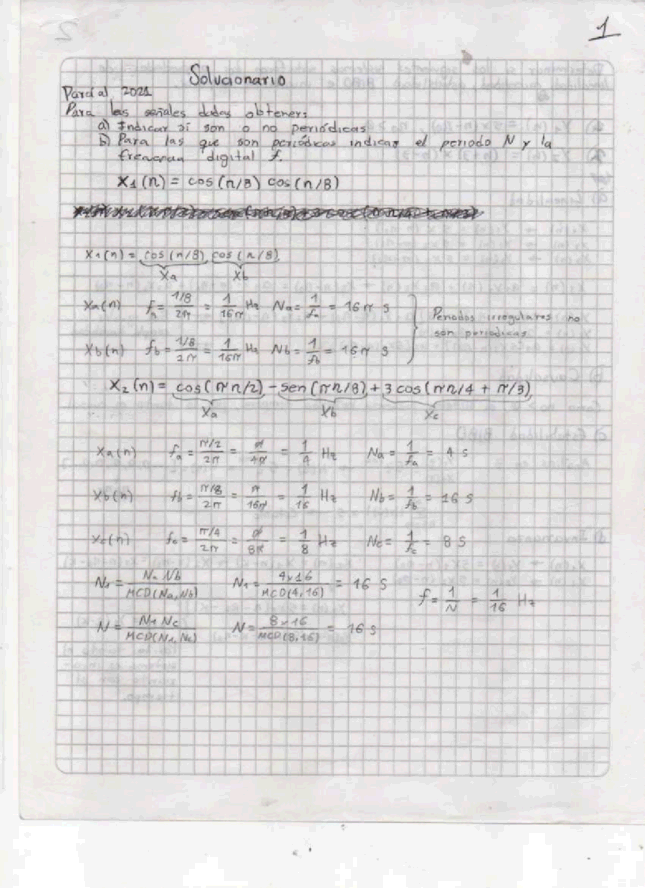 1
Solucionario
Parcial 2021
Para las señales dadas obtener:
a) Indicar si son o no periódicas
b) Para las que son periódicas indicar el periodo N y la
frecuencia digital f.
X₁(n) = cos(n/8) cos(n/8)
X₁(n) = cos(n/8) cos(n/8)
Xa Xb
Xa(n) fa = (1/8)/2π = 1/16π Hz Na = 1/fa = 16π s
Periodos irregulares no
son periodicas
Xb(n) fb = (1/8)/2π = 1/16π Hz Nb = 1/fb = 16π s
X₂(n) = cos(πn/2) - sen(πn/8) + 3 cos(πn/4 + π/3)
Xa Xb Xc
Xa(n) fa = (π/2)/2π = π/4π = 1/4 Hz Na = 1/fa = 4 s
Xb(n) fb = (π/8)/2π = π/16π = 1/16 Hz Nb = 1/fb = 16 s
Xc(n) fc = (π/4)/2π = π/8π = 1/8 Hz Nc = 1/fc = 8 s
N₁ = Na Nb/MCD(Na,Nb) N₁ = 4x16/MCD(4,16) = 16 s f = 1/N = 1/16 Hz
N = N₁ Nc/MCD(N₁,Nc) N = 8x16/MCD(8,16) = 16 s